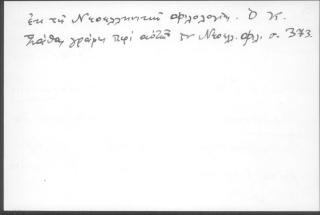 ἐκ τῆς Νεοελληνικῆς Φιλολογίας. Ὁ Κ.
Σάθας γράφει περὶ αὐτοῦ ἐν Νεοελ. φιλ. σ. 373.